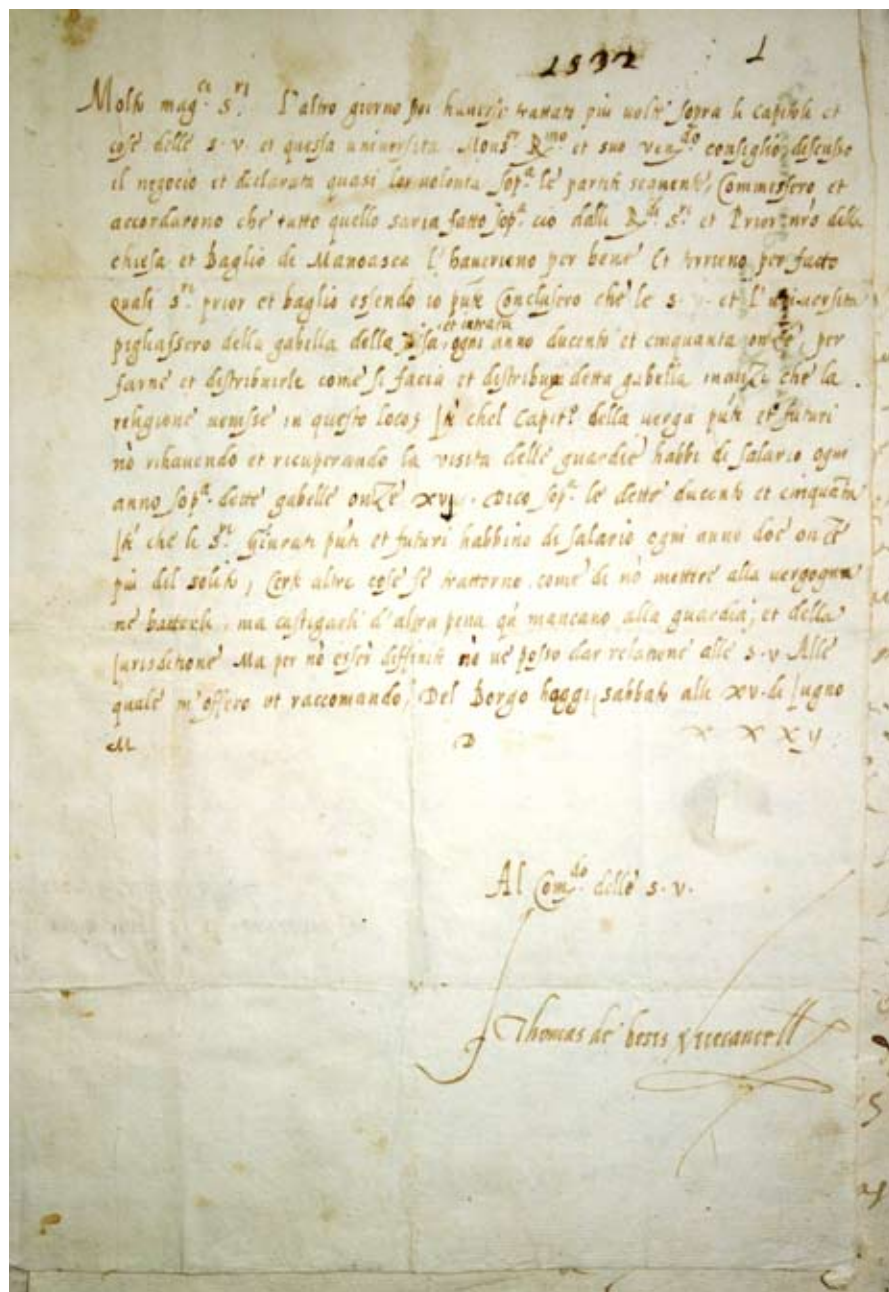 1532 1
Molto mag.ci S.ri L'altro giorno poi havesse trattato più volte sopra li Capitoli et
cose delle S. V. et questa universita Mons.r R.mo et suo ven.do consiglio, discusso
il negocio et declarata quasi lor volonta sop.a le partiti sequenti, Commessero et
accordarono che tutto quello saria fatto sop.a cio dalli R.di S.ri et Prior nr̄o della
chiesa et Baglio de Manoasca l'haverieno per bene Et terrieno per facto
quali S.ri prior et baglio essendo io pn̄te Conclusero che le S. V. et l'universita
pegliassero della gabella della et intrata ogni anno ducento et cinquanta onze, per
farne et distribuirle come si facia et distribuya detta gabella inanzi che la
religione venisse in questo loco; Itē chel Capit.o della verga pn̄ti et futuri
nō rihavendo et recuperando la visita delle guardie habbi di salario ogni
anno sop.a dette gabelle onze xvj. Dico sop.a le dette ducento et cinquanta
Itē che li S.ri Giurati pn̄ti et futuri habbino di salario ogni anno doe onze
più del solito; Certe altre cose se trattorno come di nō mettere alla vergogna
ne batterli, ma castigarli d'altra pena qn̄ mancano alla guardia; et della
Jurisditione Ma per nō esser diffiniti nō ve posso dar relatione alle S. V. Alle
quale m'offero et raccomando; Del Borgo haggi sabbato alli xv. di Jugno
M D X X X ij
Al Com.do delle S. V.
Thomas de bosis Vicecancell